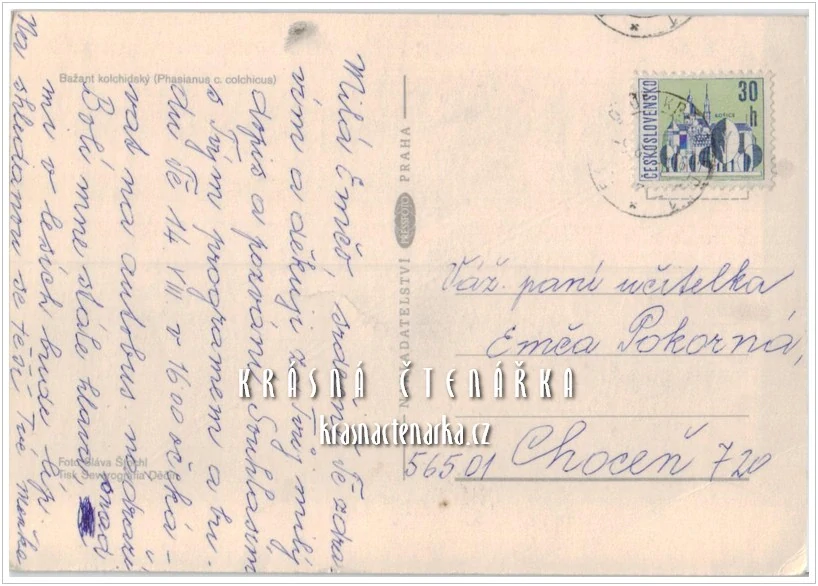 Bažant kolchidský (Phasianus c. colchicus)
Milá Emčo, srdečně Tě zdra-
vím a děkuji za Tvůj milý
dopis a pozvání. Souhlasím
s Tvým programem a bu-
du Tě 14. VIII v 16 00 očeká-
vat na autobus. nádraží.
Bolí mne stále hlava snad
mi v lesích bude líp.
Na shledanou se těší Tvé
Foto Sláva Štochl
Tisk Severografia Děčín
NAKLADATELSTVÍ PRESSFOTO PRAHA
ČESKOSLOVENSKO
30 h
KOŠICE
Váž. paní učitelka
Emča Pokorná,
565 01 Choceň 720
KRÁSNÁ ČTENÁŘKA
krasnactenarka.cz